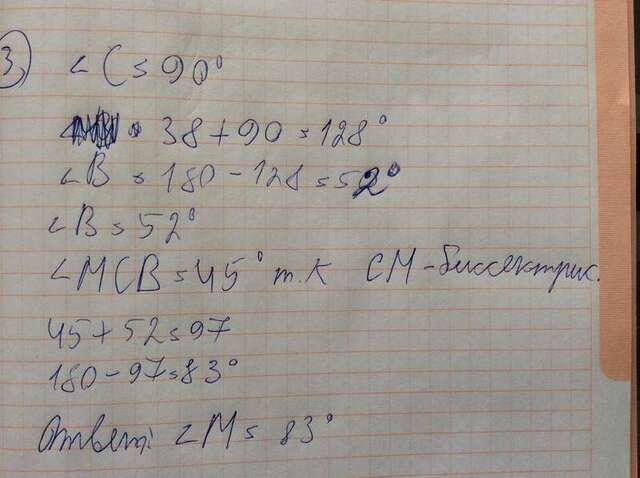 3)
∠C = 90°
= 38 + 90 = 128°
∠B = 180 - 128 = 52°
∠B = 52°
∠MCB = 45° т.к CM - биссектрис.
45 + 52 = 97
180 - 97 = 83°
Ответ: ∠M = 83°